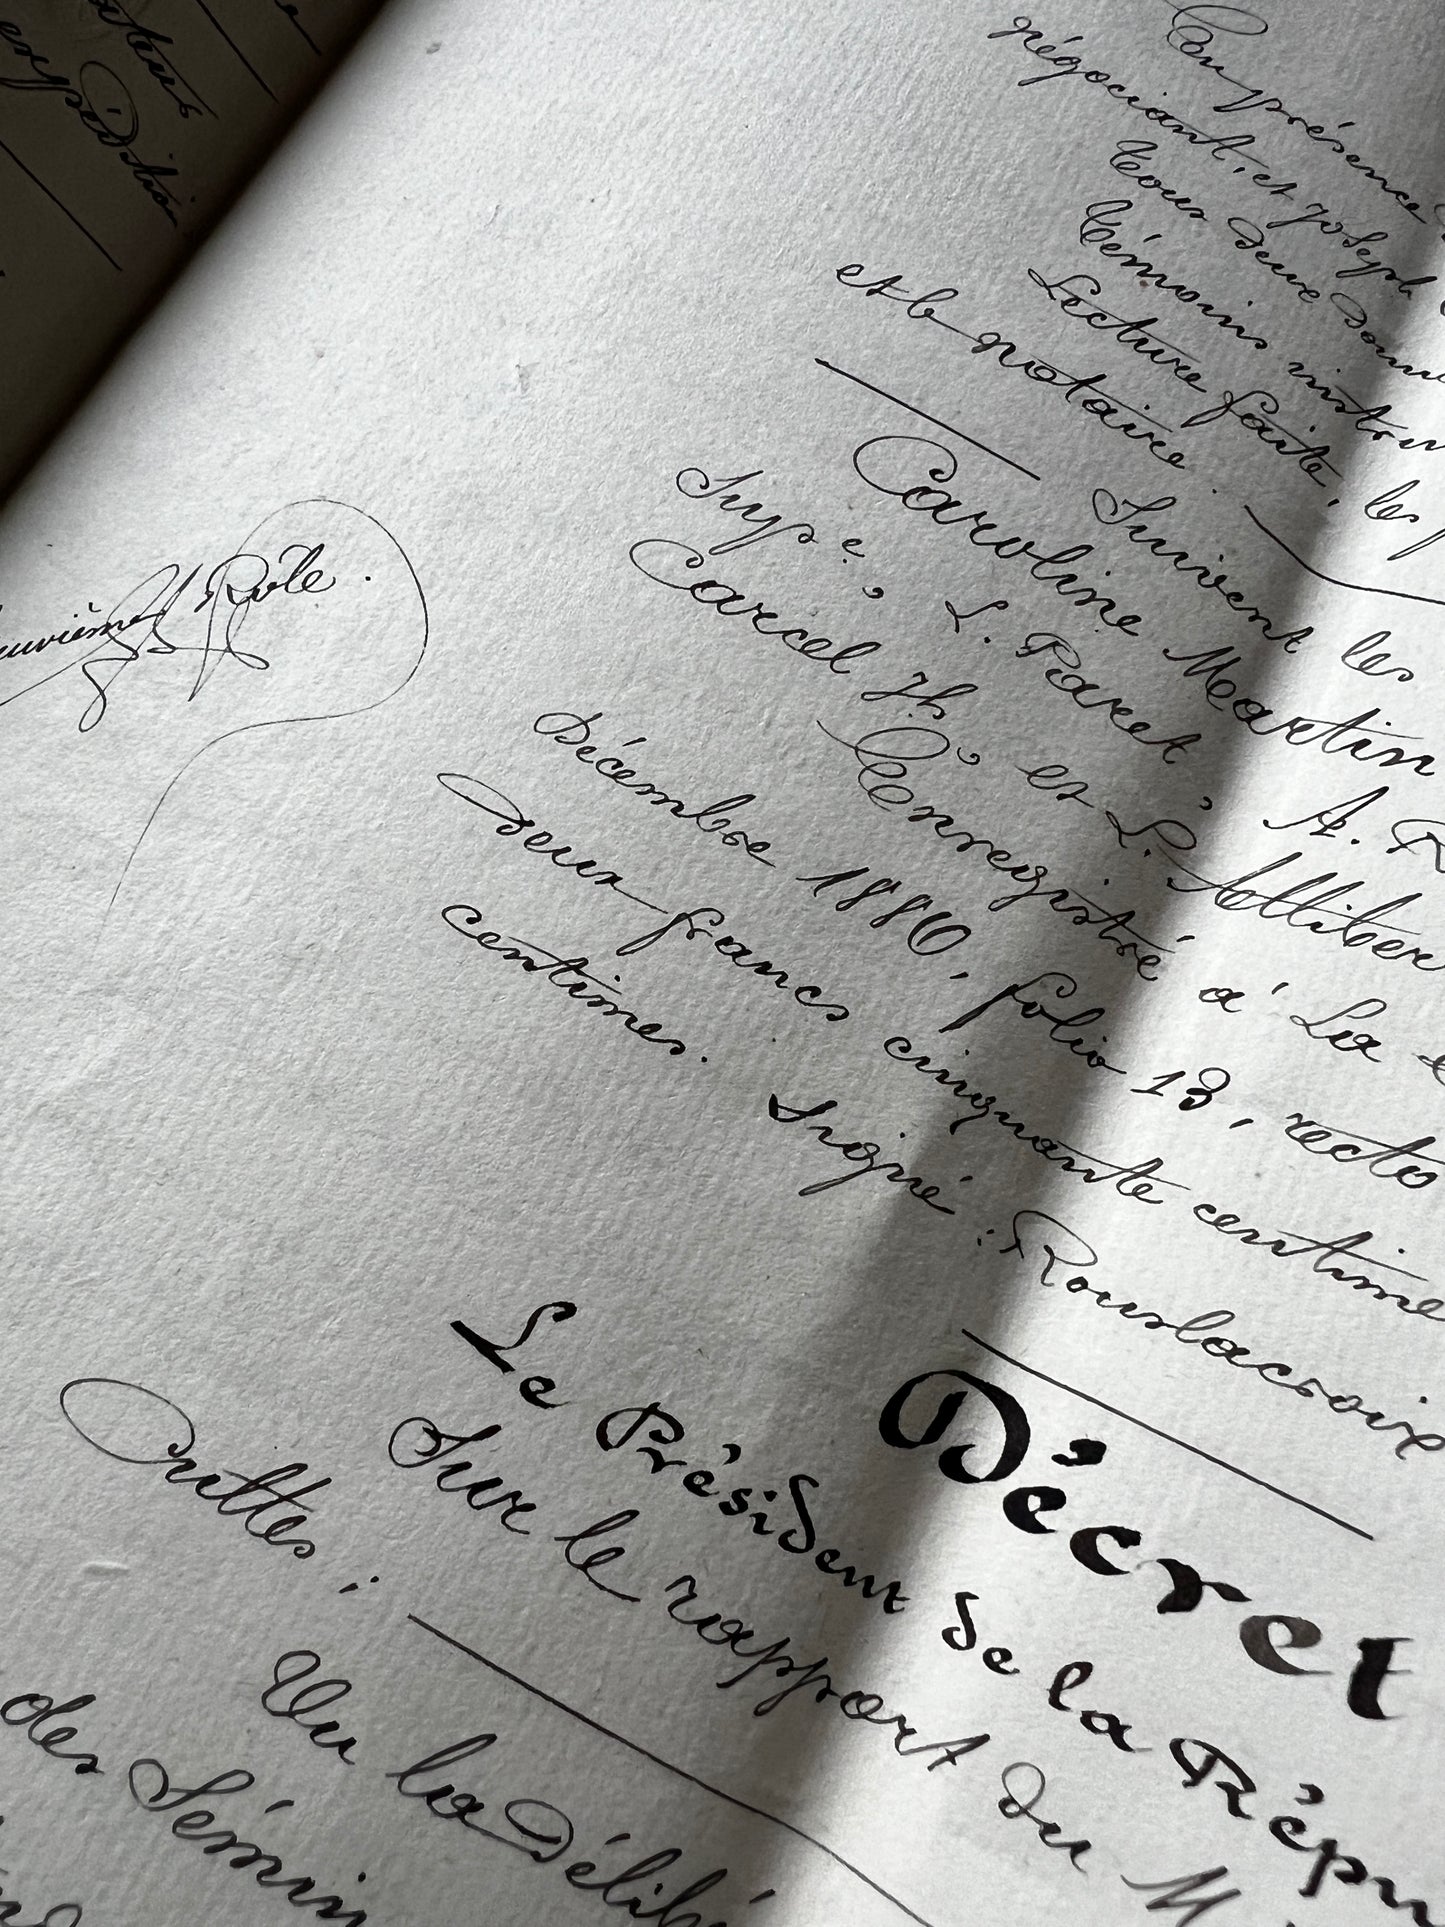 expédition
En présence
négociant, et Joseph
Tous deux
Témoins
Lecture faite, les
et le notaire.
Suivent les
Caroline Martin
Supe, L. Paret, A. R
Carcel Jh, et L. Alliber
Enregistré à La
Décembre 1880, folio 13, recto
deux francs cinquante centime
centimes. Signé: Rouslacroix
Rôle.
Décret
Le Président de la Répu
Sur le rapport du M
Cultes;
Vu la Délib
des Sémin